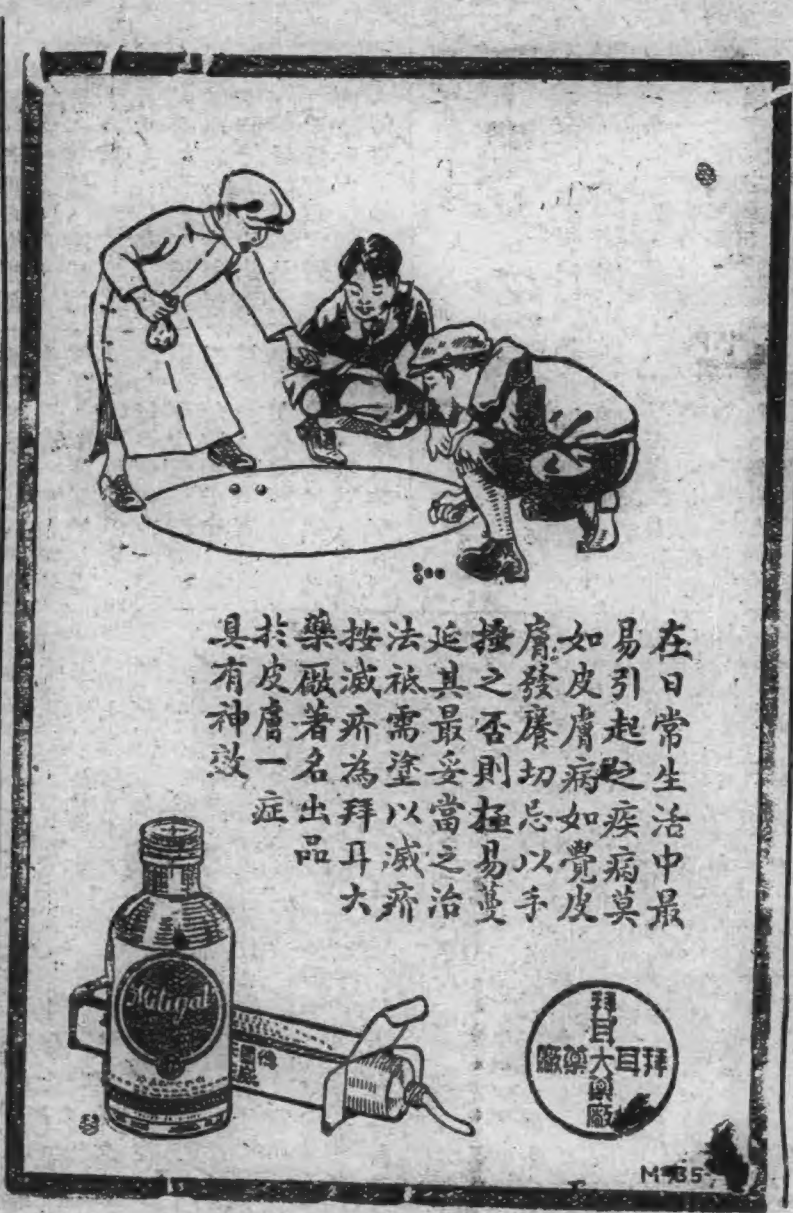 在日常生活中最
易引起之疾病莫
如皮膚病如覺皮
膚發癢切忌以手
搔之否則極易蔓
延其最妥當之治
法祗需塗以滅疥
按滅疥為拜耳大
藥厰著名出品
於皮膚一症
具有神效
Mitigal
拜耳大藥廠
拜耳大藥廠